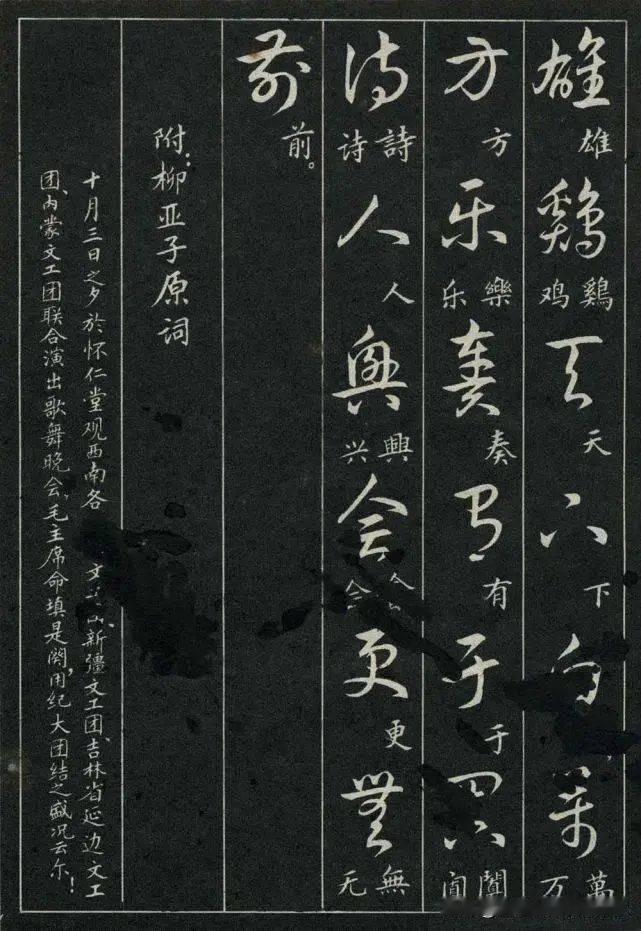 雄鷄天下白萬
雄 鷄鸡 天 下 萬万
方乐奏有于阗
方 樂乐 奏 有 于 闐阗
诗人興会更無
詩诗 人 興兴 會会 更 無无
前
前。
附:柳亚子原词
十月三日之夕於怀仁堂观西南各 文工团、新疆文工团、吉林省延边文工
团、内蒙文工团联合演出歌舞晚会,毛主席命填是阕,用纪大团结之盛况云尔!